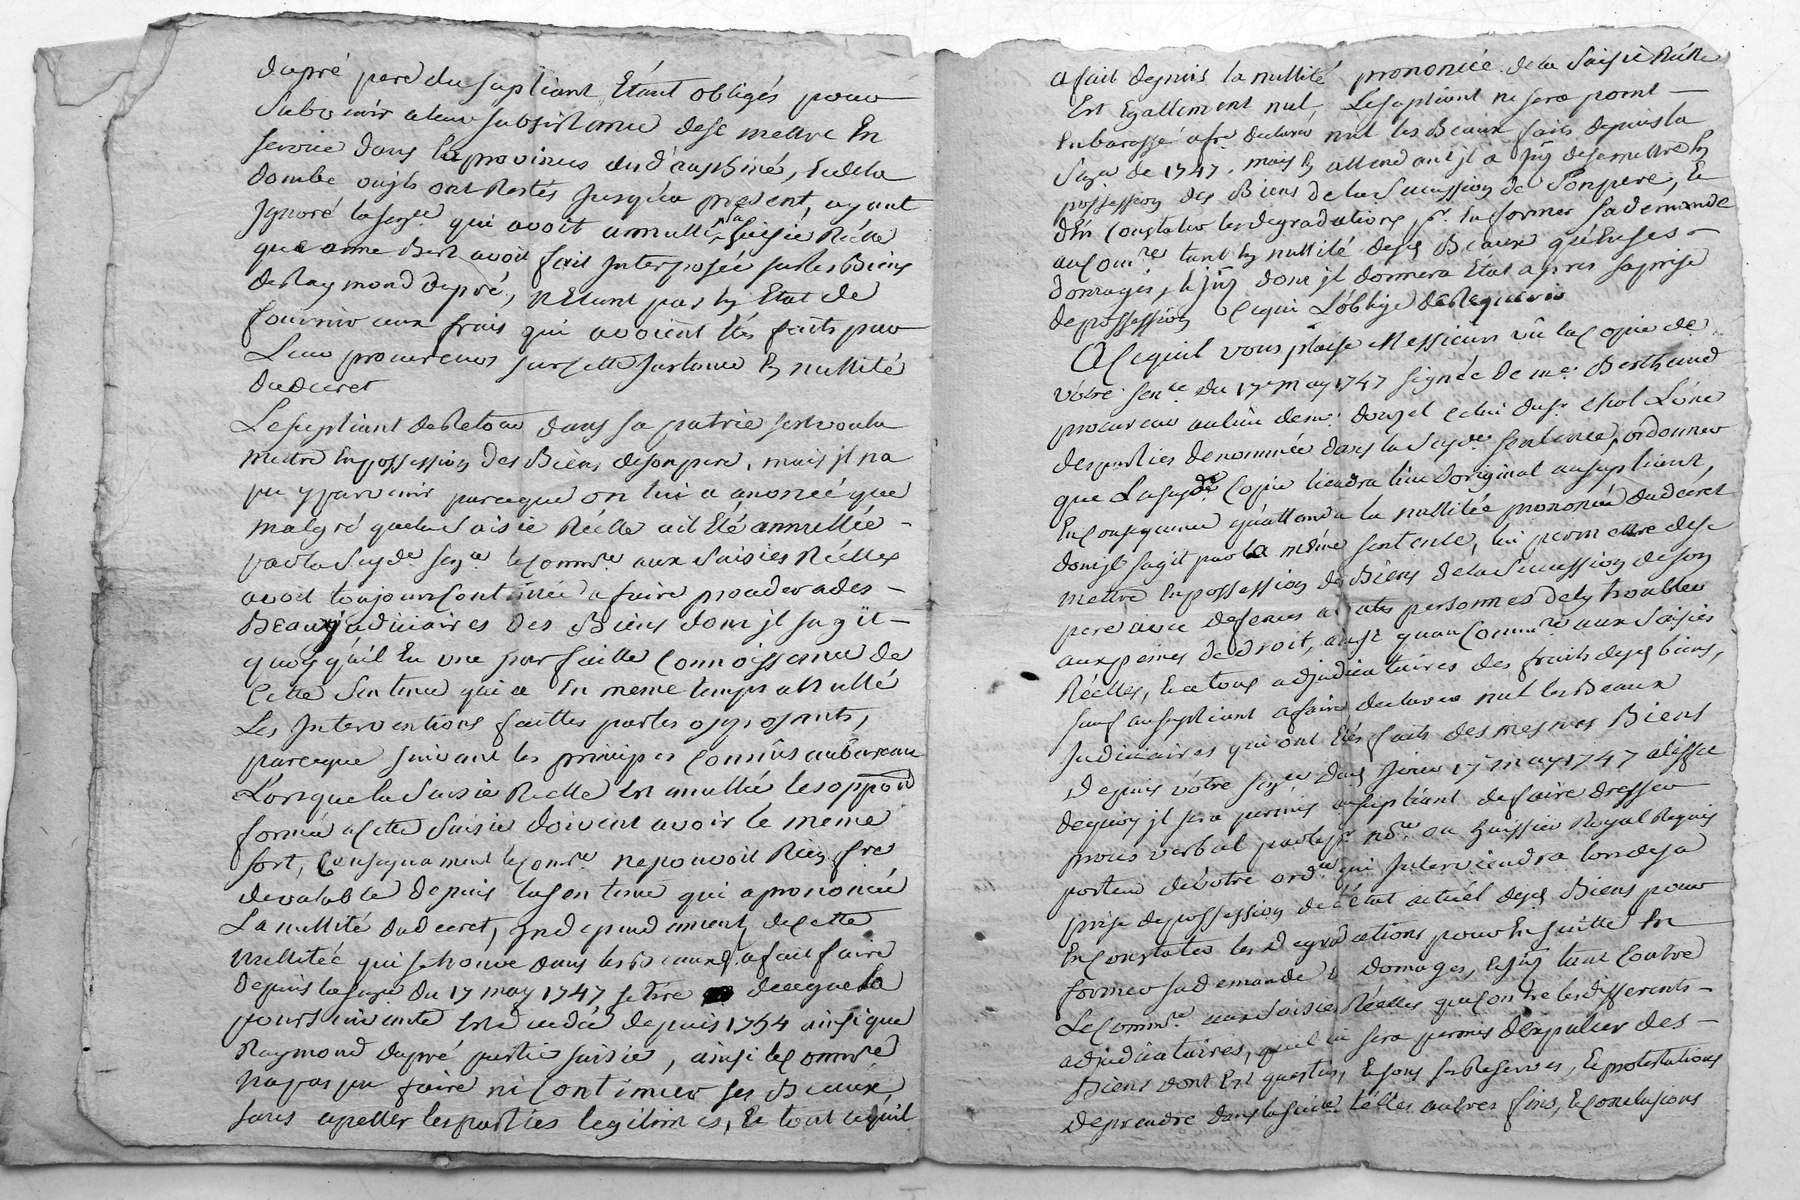 dupré pere du supliant Etant obligés pour
Subvenir a leur subsistance dese mettre En
service dans les provinces du d'auphiné, Et de la
dombe ou ils ont Restés Jusqu'a present, ayant
Ignoré la senc.e qui avoit annullé la saisie Réelle
que anne Bert avoit fait Interposée sur les Biens
de Raymond dupré, N'Etant pas En Etat de
fournir aux frais qui avoient Etés faits par
Leur procureur sur cette Instance En nullité
du decret
Le supliant de Retour dans sa patrie s'est voulu
mettre En possession des Biens de son pere, mais jl na
pu y parvenir parceque on lui a anoncé que
malgré que la Saisie Réelle ait Eté annullée
par la susd.e senc.e le comm.re aux Saisies Réelles
avoit toujours continué a faire proceder a des
Beaux judiciaires des Biens dont jl sagit
quoy qu'il Eu une parfaitte connoissance de
cette Sentence qui a En meme temps annullé
Les Interventions faittes par les oposants,
parceque suivant les principes connûs au bureau
Lorsque la Saisie Réelle Est anullée les oppôns
formée a cette Saisie doivent avoir le meme
sort, Consequament le com.re ne pouvoit Rien f.re
de valable depuis la sentence qui a prononcée
La nullité du decret, Independament de cette
nullitée qui se trouve dans les Beaux a fait faire
depuis la senc.e du 17 may 1747, se tire de ce que la
poursuivante Est decedée depuis 1754 ainsi que
Raymond dupré partie saisie, ainsi le comm.re
na pas pu faire ni continuer ses Beaux,
sans apeller les parties legitimes, Et tout ce qu'il
a fait depuis la nullité prononcée de la Saisie Réelle
Est Egallement nul, Le supliant ne sera point
Enbarassé a f.re declarer nul les Beaux faits depuis la
Senc.e de 1747. mais En attendant jl a jnt. de se mettre En
possession des Biens de la Succession de Son pere, Et
d'En constater les degradations p.r En former sa demande
au com.re tant En nullité des.ds Beaux qu'En ses
domages, Et jnt. dont jl donnera Etat apres sa prise
de possession Ce qui L'oblige de Requerir
A Ce quil vous plaise Messieurs vû la copie de
vôtre sen.ce du 17e may 1747 signée de me. Berthaud
procureur au lieu de me. Douzel celui du s.r chol L'une
des parties denommée dans la susd.e sentence, ordonner
que La susd.e Copie tiendra lieu d'original au supliant,
En consequence qu'attendu la nullitée prononcée du decret
dont jl sagit par la même sentence, lui permettre de se
mettre En possession des Biens de la Succession de son
pere avec defenses a toutes personnes de ly troubler
aux peines de droit, ainsi quau Comm.re aux Saisies
Réelles, Et a tous adjudicataires des fruits des.ds biens,
sauf au supliant a faire declarer nul les Beaux
Judiciaires qui ont Etés faits des mesmes Biens
Depuis vôtre sen.ce dud. jour 17e may 1747 a l'effet
dequoy jl sera permis au supliant de faire dresser
procés verbal par le p.r no.re ou huissier Royal Requis
porteur de vôtre ord.ce qui Interviendra lors de sa
prise de possession de l'état actuél des.ds Biens pour
En constater les degradations pour En suitte En
former sa demande En domages, Et jnt. tant Contre
Le comm.re aux saisies Réelles que contre les differents
adjudicataires, quil lui sera permis d'Expulser des
Biens dont Est question, Et sous ses Reserves, Et protestations
de prendre dans la suitte telles autres fins, Et conclusions